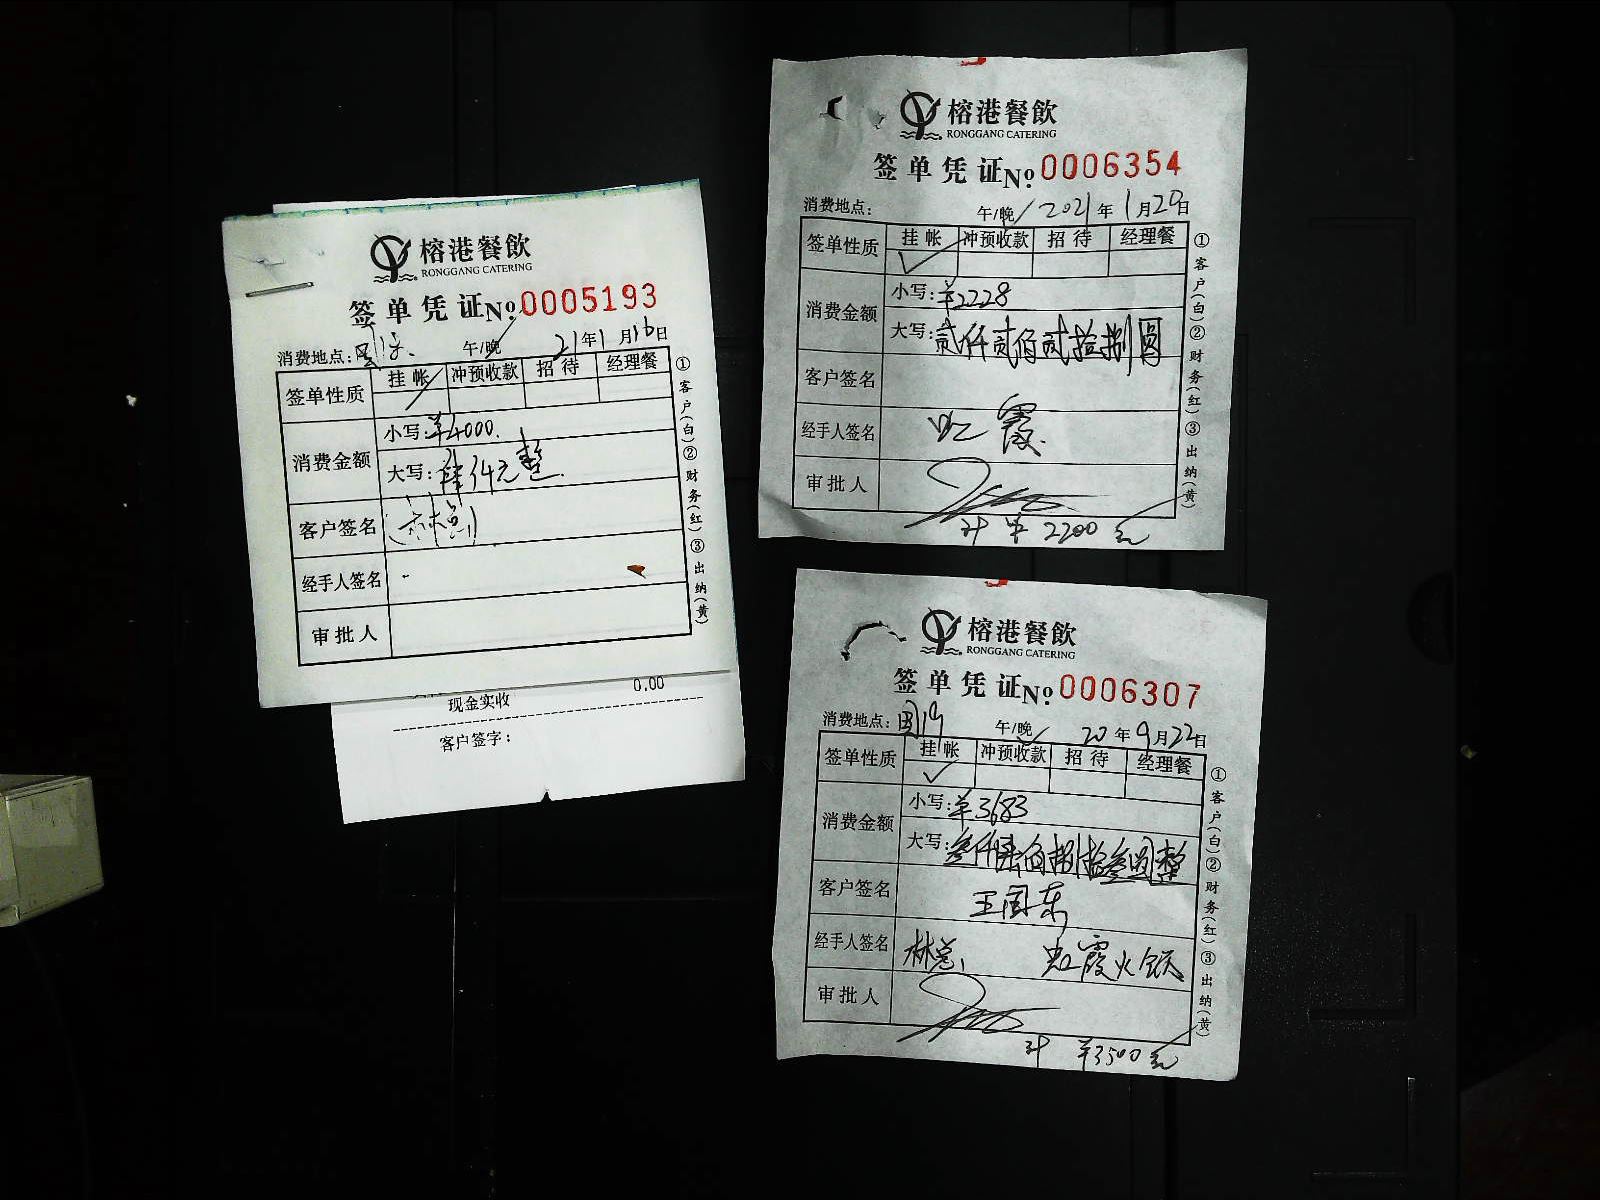 榕港餐飲
RONGGANG CATERING
签单凭证№0005193
消费地点: 午/晚 21年1月16日
签单性质 挂帐 冲预收款 招待 经理餐
消费金额 小写:¥4000.
大写: 仟元整.
客户签名
经手人签名
审批人
①客户(白)②财务(红)③出纳(黄)
现金实收 0.00
客户签字:
榕港餐飲
RONGGANG CATERING
签单凭证№0006354
消费地点: 午/晚 2021年1月20日
签单性质 挂帐 冲预收款 招待 经理餐
消费金额 小写:¥2228
大写:贰仟贰佰贰拾捌圆
客户签名
经手人签名 霞
审批人
计 ¥2200元
①客户(白)②财务(红)③出纳(黄)
榕港餐飲
RONGGANG CATERING
签单凭证№0006307
消费地点: 午/晚 20年9月22日
签单性质 挂帐 冲预收款 招待 经理餐
消费金额 小写:¥3683
大写:叁仟陆佰捌拾叁圆整
客户签名 王国东
经手人签名 林总 虹霞火
审批人
计 ¥3500元
①客户(白)②财务(红)③出纳(黄)